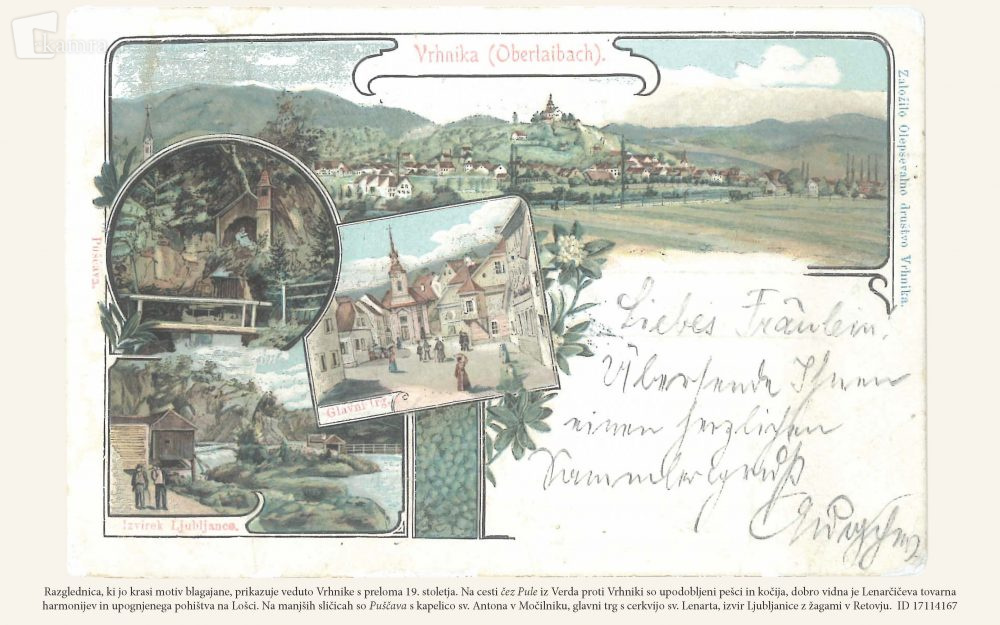 kamra
Vrhnika (Oberlaibach).
Založilo Olepševalno društvo Vrhnika.
Puščava.
Glavni trg.
Izvirek Ljubljance.
Liebes Fräulein.
Übersende Ihnen
einen herzlichen
Sammlergruß
Razglednica, ki jo krasi motiv blagajane, prikazuje veduto Vrhnike s preloma 19. stoletja. Na cesti čez Pule iz Verda proti Vrhniki so upodobljeni pešci in kočija, dobro vidna je Lenarčičeva tovarna
harmonijev in upognjenega pohištva na Lošci. Na manjših sličicah so Puščava s kapelico sv. Antona v Močilniku, glavni trg s cerkvijo sv. Lenarta, izvir Ljubljanice z žagami v Retovju. ID 17114167